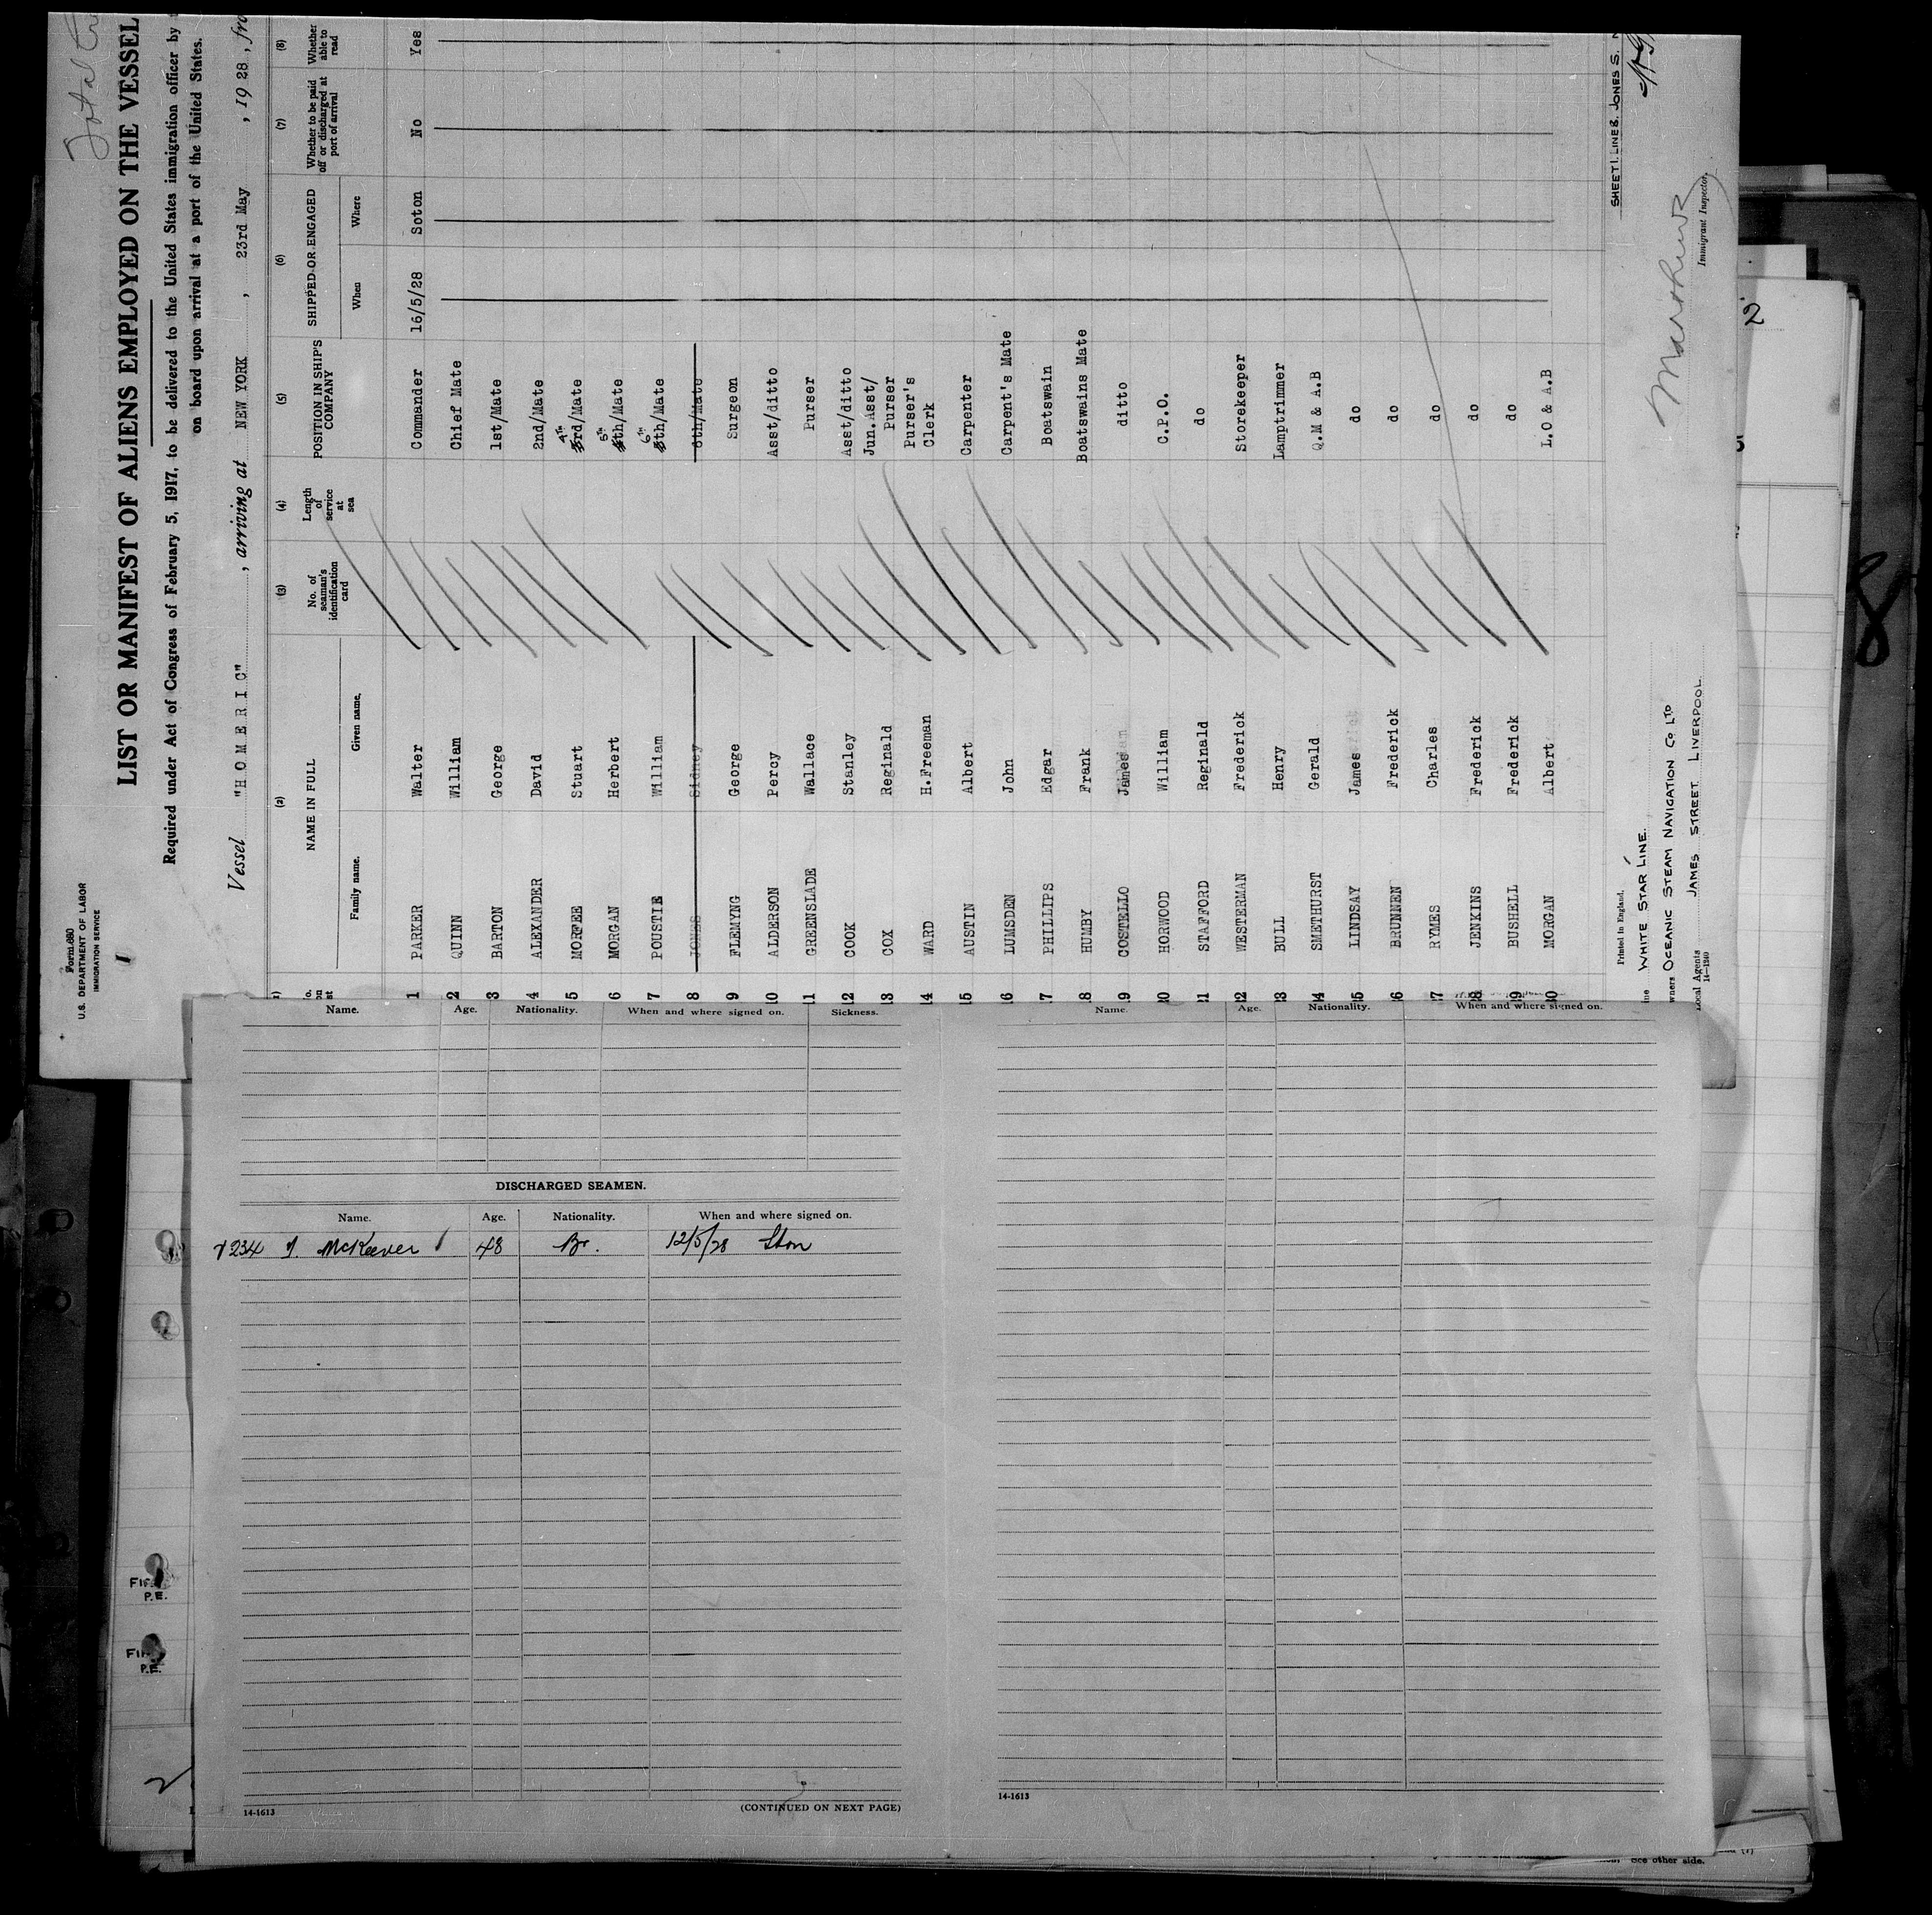 Form 680
U.S. DEPARTMENT OF LABOR
IMMIGRATION SERVICE
1
Total
LIST OR MANIFEST OF ALIENS EMPLOYED ON THE VESSEL
Required under Act of Congress of February 5, 1917, to be delivered to the United States immigration officer by
on board upon arrival at a port of the United States.
Vessel "HOMERIC", arriving at NEW YORK, 23rd May, 1928, fro
(2) (3) (4) (5) (6) (7) (8)
NAME IN FULL No. of seaman's identification card Length of service at sea POSITION IN SHIP'S COMPANY SHIPPED OR ENGAGED Whether to be paid off or discharged at port of arrival Whether able to read
Family name. Given name. When Where
1 PARKER Walter Commander 16/5/28 Soton No Yes
2 QUINN William Chief Mate
3 BARTON George 1st/Mate
4 ALEXANDER David 2nd/Mate
5 MORFEE Stuart 4th 3rd/Mate
6 MORGAN Herbert 5th 4th/Mate
7 POUSTIE William 6th 5th/Mate
8 JONES Sidney 6th/Mate
9 FLEMYNG George Surgeon
10 ALDERSON Percy Asst/ditto
11 GREENSLADE Wallace Purser
12 COOK Stanley Asst/ditto
13 COX Reginald Jun.Asst/ Purser
14 WARD H.Freeman Purser's Clerk
15 AUSTIN Albert Carpenter
16 LUMSDEN John Carpent's Mate
17 PHILLIPS Edgar Boatswain
18 HUMBY Frank Boatswains Mate
19 COSTELLO James ditto
20 HORWOOD William C.P.O.
21 STAFFORD Reginald do
22 WESTERMAN Frederick Storekeeper
23 BULL Henry Lamptrimmer
24 SMETHURST Gerald Q.M & A.B
25 LINDSAY James do
26 BRUNNEN Frederick do
27 RYMES Charles do
28 JENKINS Frederick do
29 BUSHELL Frederick do
30 MORGAN Albert L.O & A.B
Printed in England.
SHEET 1. LINE 8. JONES S.
ine WHITE STAR LINE.
wners OCEANIC STEAM NAVIGATION Co LTD
Local Agents JAMES STREET LIVERPOOL.
14-1240
Immigrant Inspector.
Name. Age. Nationality. When and where signed on. Sickness.
DISCHARGED SEAMEN.
Name. Age. Nationality. When and where signed on.
234 J. McKeever 48 Br. 12/5/28 Ston
14-1613
(CONTINUED ON NEXT PAGE)
Name. Age. Nationality. When and where signed on.
14-1613
2
8
2
P.E.
See other side.